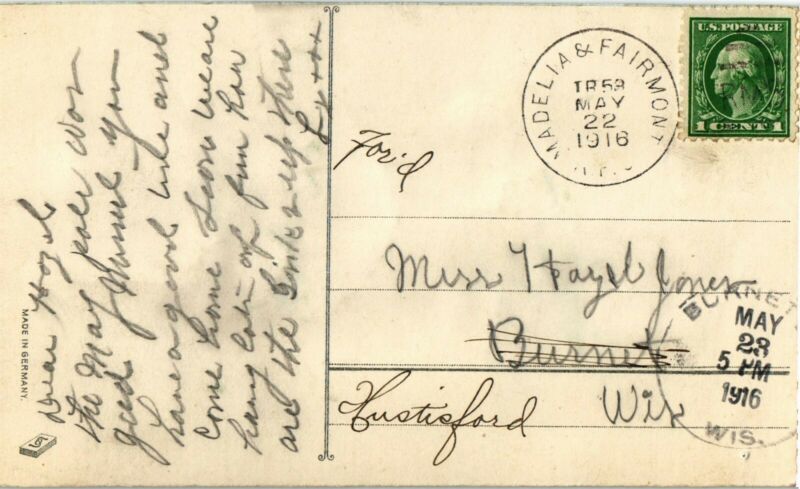 Dear Hazel
the May pole was
good Hazel you
have a good time and
come home soon we are
haveing lots of fun how
are the Birds up there
MADE IN GERMANY.
MADELIA & FAIRMONT
TR 53
MAY
22
1916
R.P.O.
U.S. POSTAGE
1 CENT 1
For'd
Miss Hazel Jones
Burnet
Hustisford Wis
BURNETT
MAY
23
5 PM
1916
WIS.